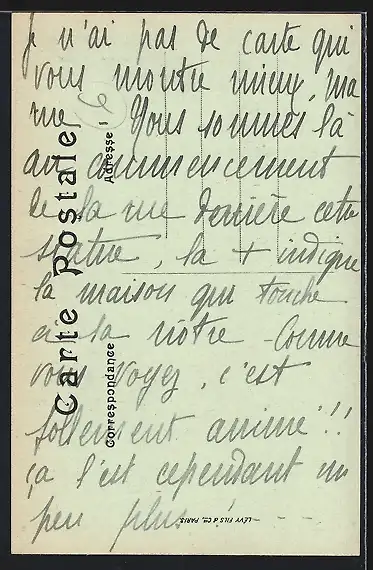 Je n'ai pas de carte qui
vous montre mieux, ma
rue. Nous sommes là
au commencement
de la rue derrière cette
statue, la + indique
la maison qui touche
à la nôtre - Comme
vous voyez, c'est
follement animé!!
ça l'est cependant un
peu plus! - - -
Carte Postale
Correspondance
Adresse
LÉVY FILS & Cie, PARIS